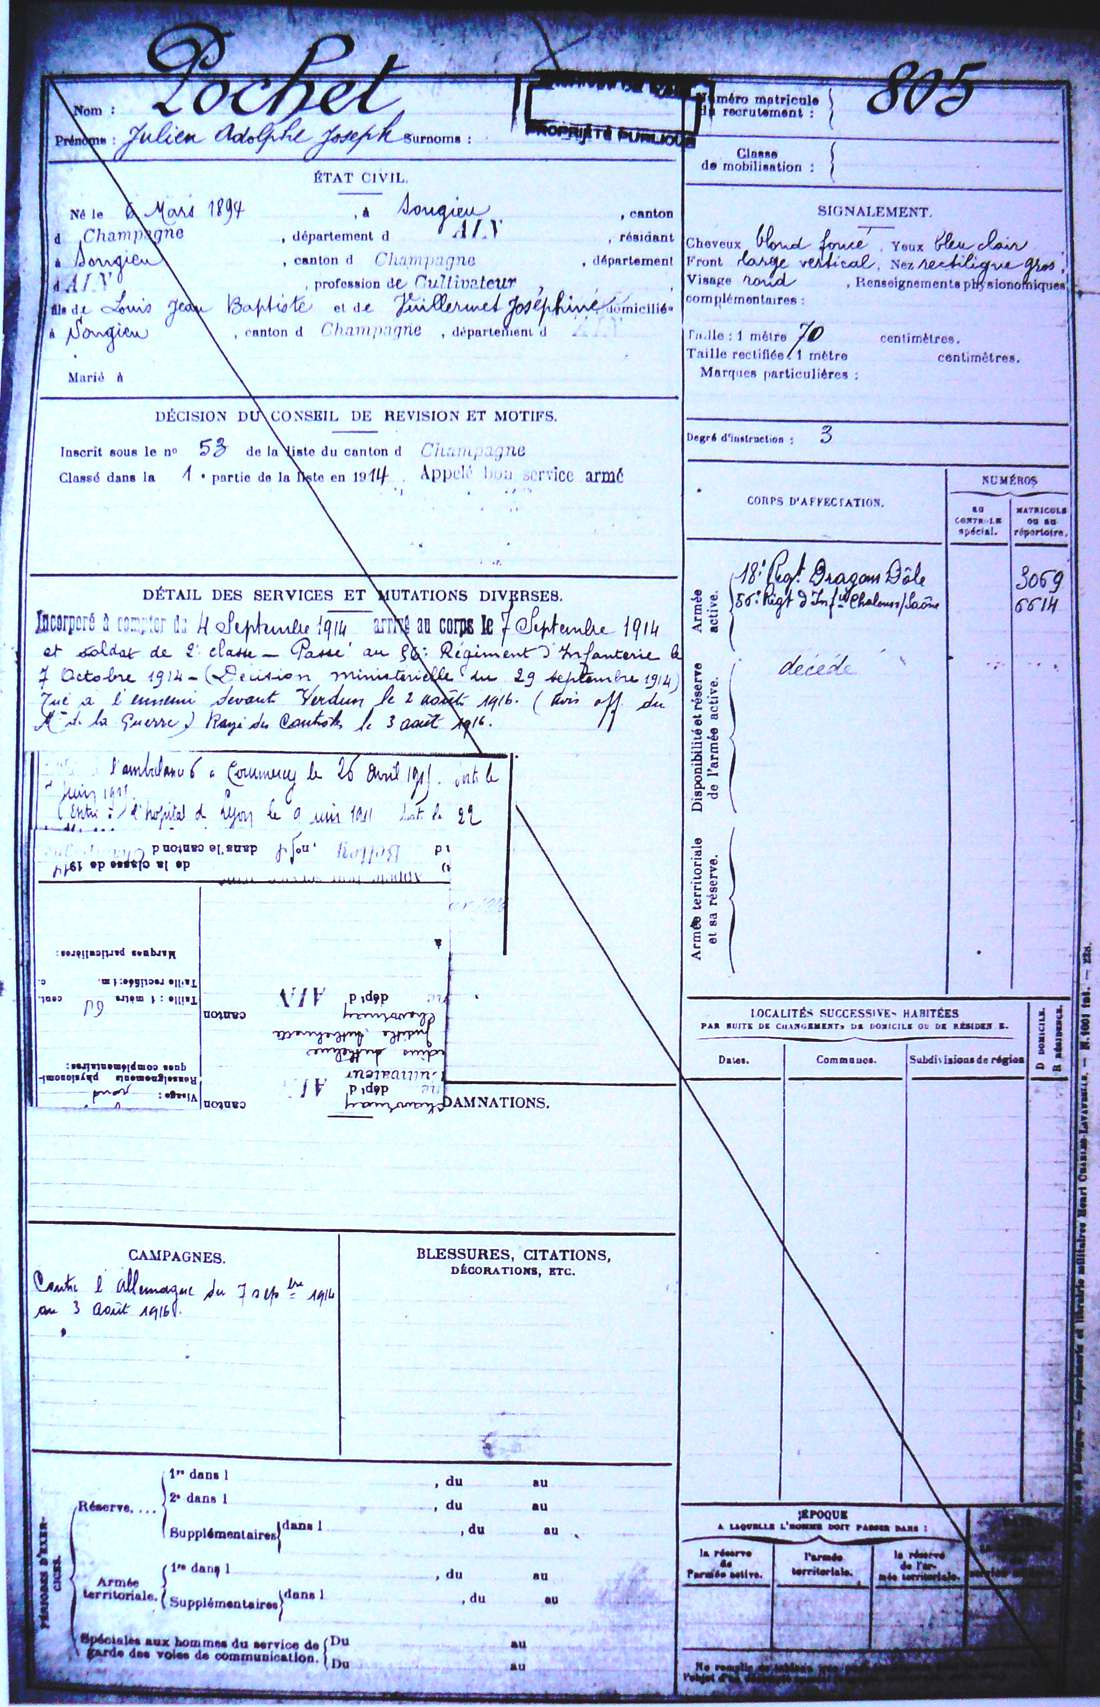 Nom : Pochet
Prénoms : Julien Adolphe Joseph Surnoms :
PROPRIÉTÉ PUBLIQUE
Numéro matricule du recrutement : 805
Classe de mobilisation :
ÉTAT CIVIL.
Né le 6 Mars 1894, à Songieu, canton
d Champagne, département d AIN, résidant
à Songieu, canton d Champagne, département
d AIN, profession de Cultivateur
fils de Louis Jean Baptiste et de Vuillermet Joséphine domiciliés
à Songieu, canton d Champagne, département d AIN
Marié à
SIGNALEMENT.
Cheveux blond foncé. Yeux bleu clair
Front large vertical. Nez rectiligne gros
Visage rond, Renseignements physionomiques
complémentaires :
Taille : 1 mètre 70 centimètres.
Taille rectifiée 1 mètre centimètres.
Marques particulières :
Degré d'instruction : 3
DÉCISION DU CONSEIL DE REVISION ET MOTIFS.
Inscrit sous le nº 53 de la liste du canton d Champagne
Classé dans la 1e partie de la liste en 1914 Appelé bon service armé
CORPS D'AFFECTATION.
NUMÉROS
AU CONTROLE spécial.
MATRICULE OU AU répertoire.
Armée active.
18e Regt Dragons Dôle 3069
56e Régt d'Infie Chalons s/Saône 6614
Disponibilité et réserve de l'armée active.
décédé
Armée territoriale et sa réserve.
DÉTAIL DES SERVICES ET MUTATIONS DIVERSES.
Incorporé à compter du 4 Septembre 1914 arrivé au corps le 7 Septembre 1914
et soldat de 2e classe — Passé au 56e Régiment d'Infanterie le
7 Octobre 1914 — (Décision ministerielle du 29 septembre 1914)
Tué a l'ennemi devant Verdun le 2 août 1916. (avis off. du
Mre de la Guerre) Rayé des Contrôles le 3 août 1916.
l'ambulance 6 à Commercy le 26 avril
l'hopital d Lyon le 9 juin
dans le canton d
de la classe de 1914
Marques particulières :
Taille rectifiée : 1 m. c.
Taille : 1 mètre 60 cent.
Renseignements physionomiques complémentaires :
Visage : rond
canton
dépt d AIN
Cultivateur
dépt d AIN
canton
DAMNATIONS.
LOCALITÉS SUCCESSIVES HABITÉES
PAR SUITE DE CHANGEMENTS DE DOMICILE OU DE RÉSIDENCE.
Dates.
Communes.
Subdivisions de région
D DOMICILE.
R RÉSIDENCE.
CAMPAGNES.
Contre l'Allemagne du 7 sepbre 1914
au 3 Août 1916.
BLESSURES, CITATIONS,
DÉCORATIONS, ETC.
PÉRIODES D'EXERCICES.
Réserve....
1re dans l , du au
2e dans l , du au
Supplémentaires dans l , du au
Armée territoriale.
1re dans l , du au
Supplémentaires dans l , du au
Spéciales aux hommes du service de garde des voies de communication.
Du au
Du au
ÉPOQUE
A LAQUELLE L'HOMME DOIT PASSER DANS :
la réserve de l'armée active.
l'armée territoriale.
la réserve de l'armée territoriale.
Imprimerie et librairie militaires Henri CHARLES-LAVAUZELLE.